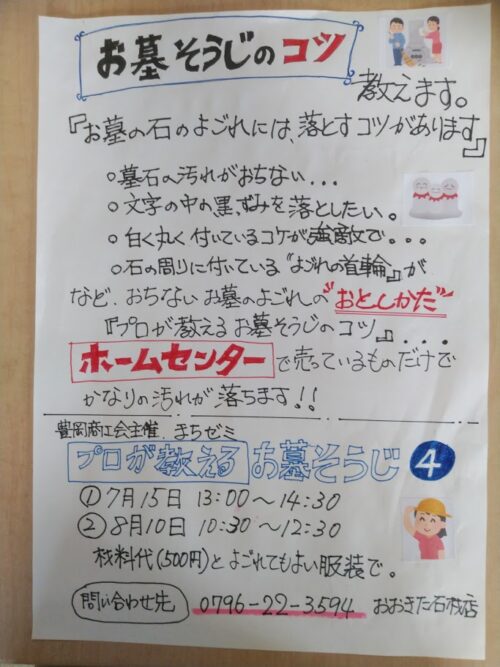 お墓そうじのコツ
教えます。
『お墓の石のよごれには、落とすコツがあります』
○墓石の汚れがおちない...
○文字の中の黒ずみを落としたい。
○白く丸く付いているコケが強敵で...
○石の周りに付いている〝よごれの首輪』が
など、おちないお墓のよごれの〝おとしかた〟
『プロが教えるお墓そうじのコツ』....
ホームセンターで売っているものだけで
かなりの汚れが落ちます!!
豊岡商工会主催 まちゼミ
プロが教えるお墓そうじ④
①7月15日 13:00～14:30
②8月10日 10:30～12:30
材料代(500円)とよごれてもよい服装で。
問い合わせ先 0796-22-3594 おおきた石材店